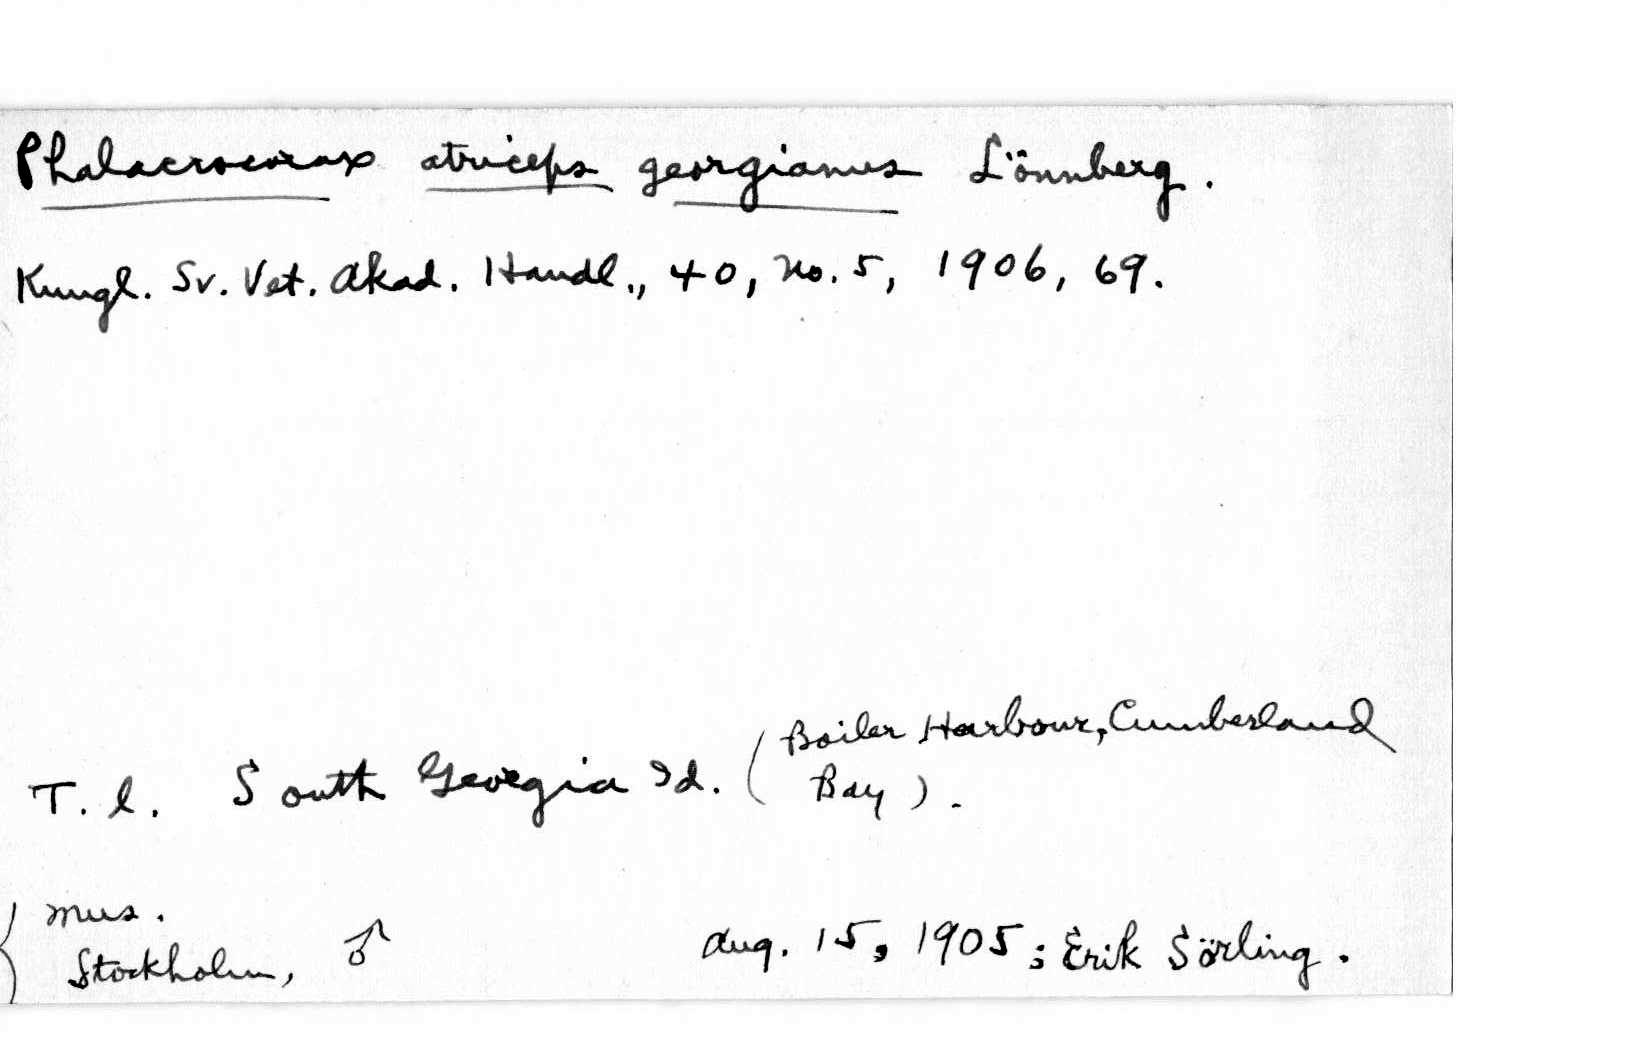 Phalacrocorax atriceps georgianus Lönnberg.
Kungl. Sv. Vet. Akad. Handl., 40, No. 5, 1906, 69.
T. l. South Georgia Id. (Boiler Harbour, Cumberland
Bay).
Mus.
Stockholm, ♂ Aug. 15, 1905; Erik Sörling.